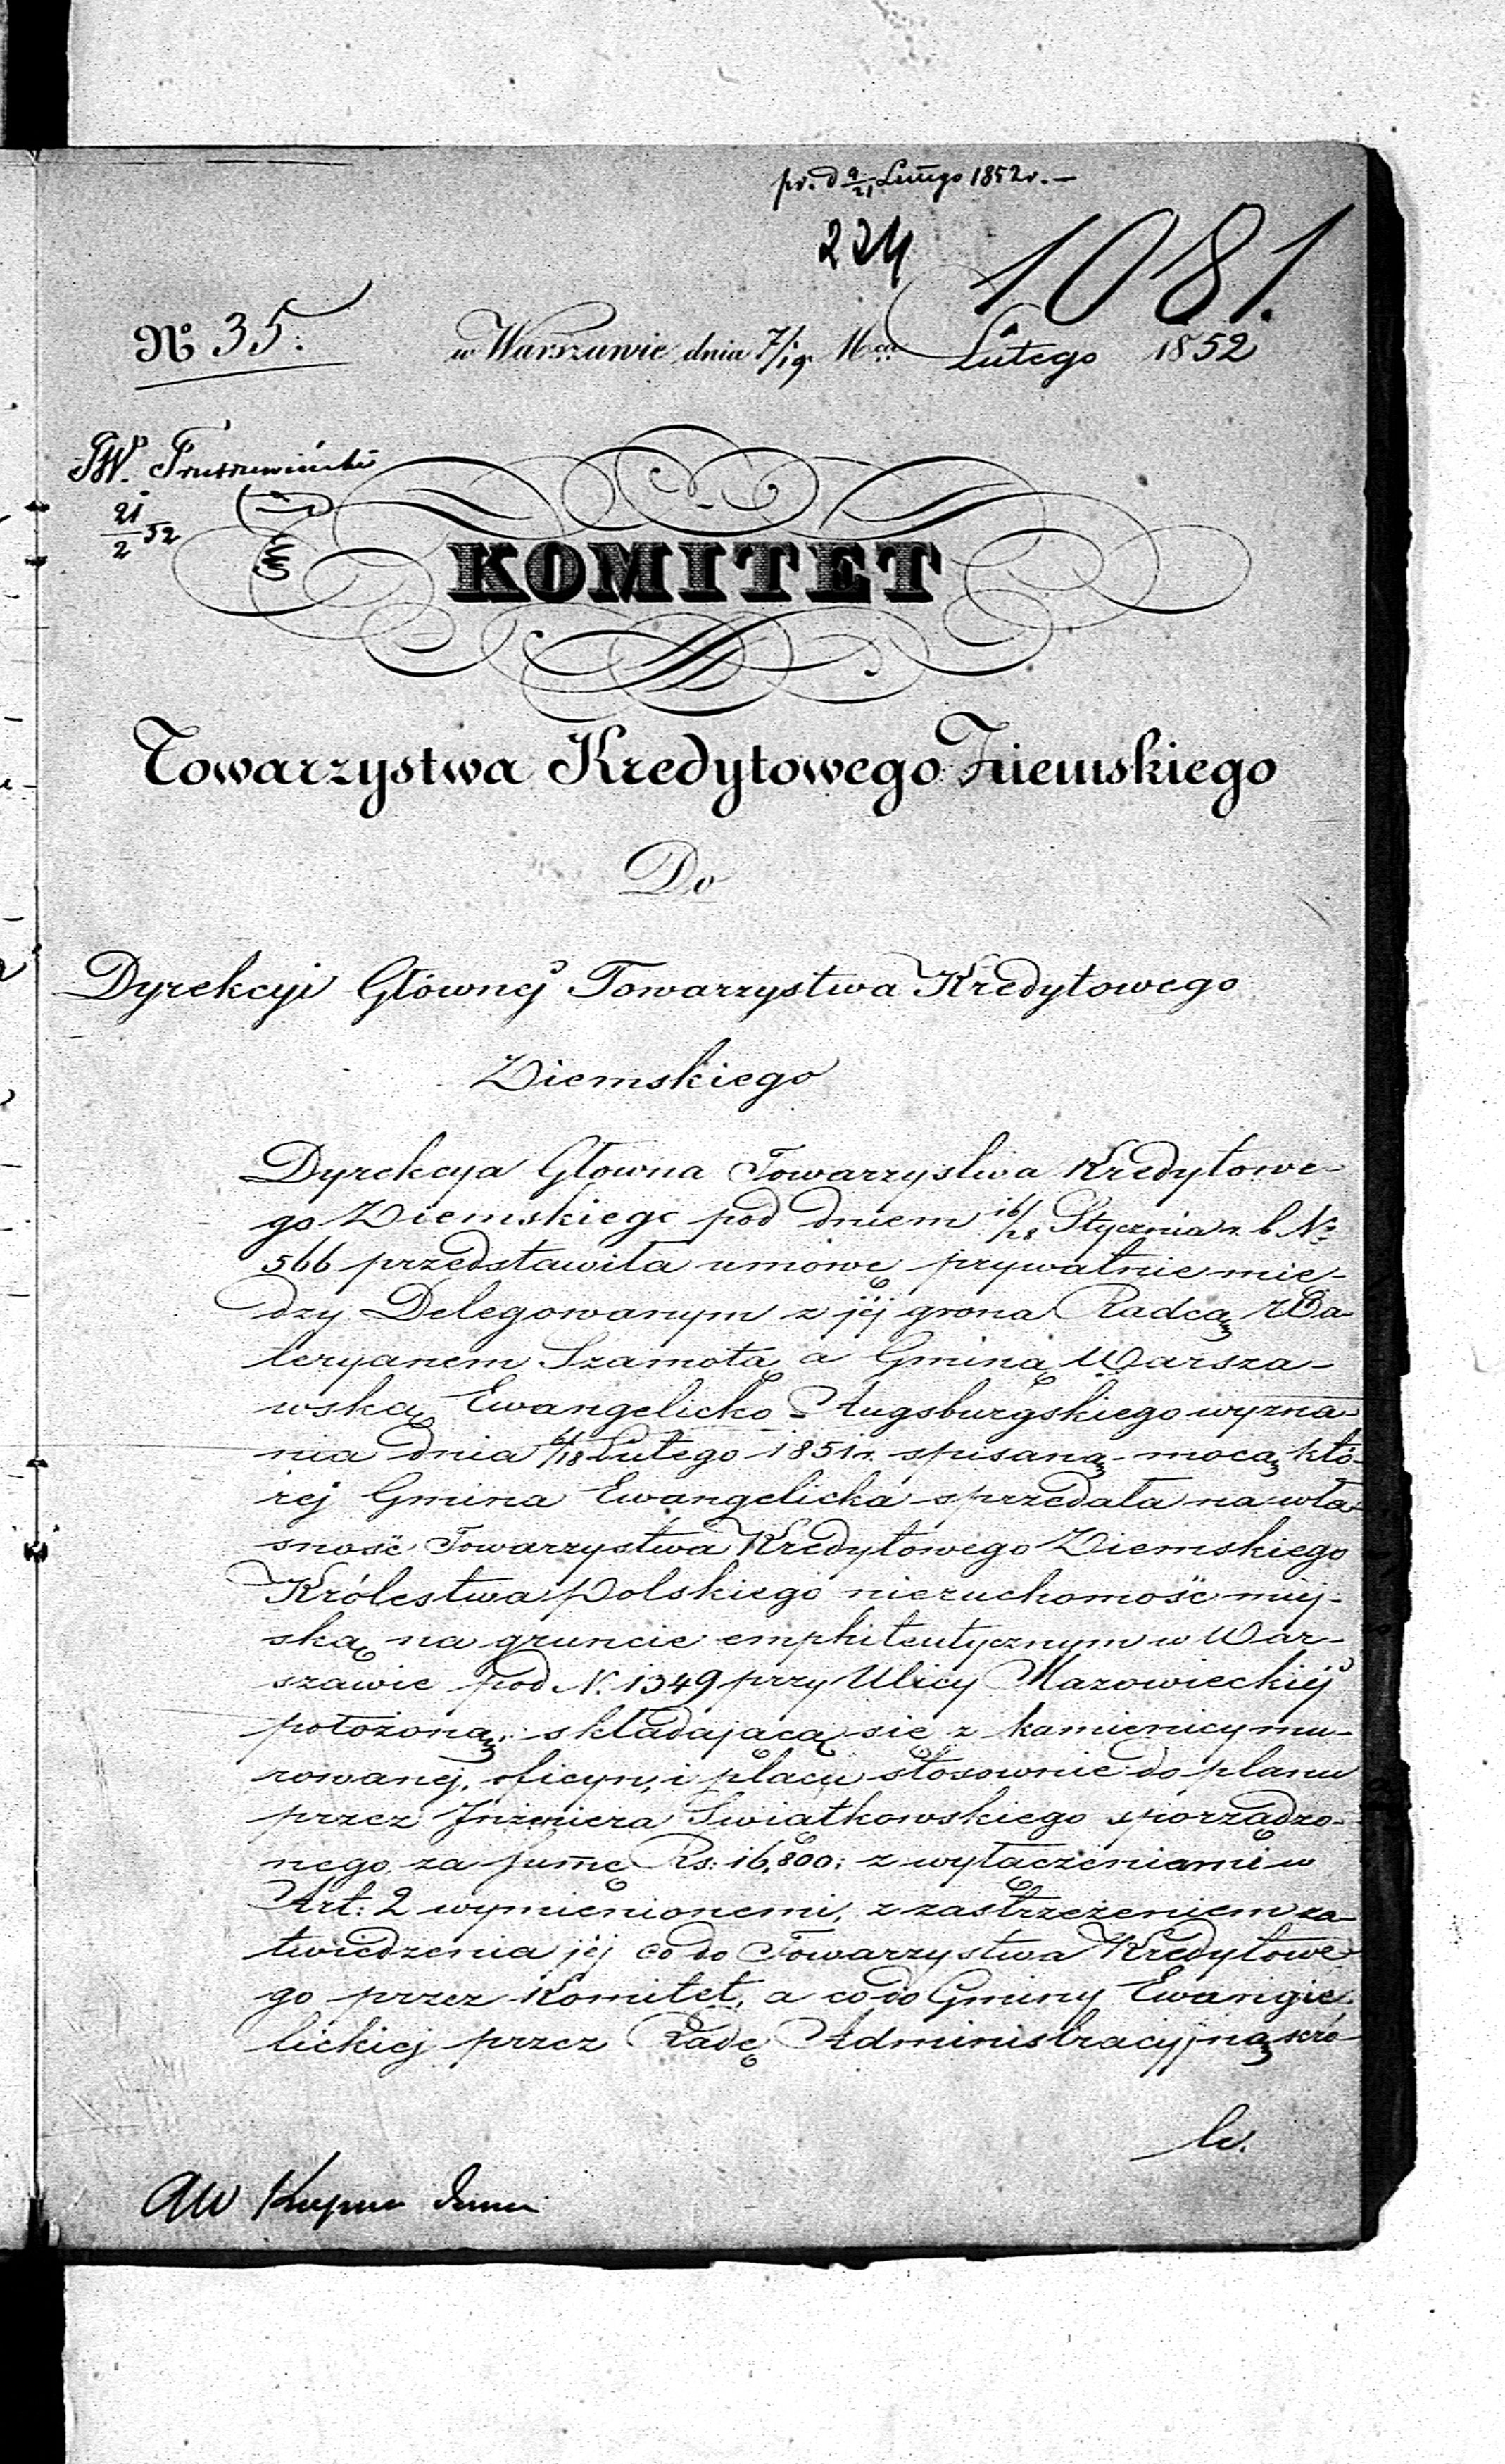 pr. d 9/21 Lutego 1852 r. —
224
1081.
№ 35.
w Warszawie dnia 7/19. Mca Lutego 1852
JW.
21/2 52
KOMITET
Towarzystwa Kredytowego Ziemskiego
Do
Dyrekcyi Głównej Towarzystwa Kredytowego
Ziemskiego
Dyrekcya Głowna Towarzystwa Kredytowe-
go Ziemskiego pod dniem 16/28 Stycznia r. b. №
566 przedstawiła umowę prywatnie mię-
dzy Delegowanym z jej grona Radcą Wa-
leryanem Szamotą a Gminą Warsza-
wską Ewangelicko-Augsburgskiego wyzna-
nia dnia 6/18 Lutego 1851 r. spisaną - mocą któ-
rej Gmina Ewangelicka sprzedała na wła-
sność Towarzystwa Kredytowego Ziemskiego
Królestwa Polskiego nieruchomość miej-
ską na gruncie emphiteutycznym w War-
szawie pod N. 1349 przy Ulicy Mazowieckiej
położoną; składającą się z kamienicy mu-
rowanej, oficyn, i placu stosownie do planu
przez Inżeniera Swiatkowskiego sporządzo-
nego, za summę Rs: 16,800: z wyłączeniami w
Art: 2 wymienionemi, z zastrzeżeniem za-
twiedzenia jej co do Towarzystwa Kredytowe-
go przez Komitet, a co do Gminy Ewangie-
lickiej przez Radę Administracyjną Kró-
le.
Kupno domu